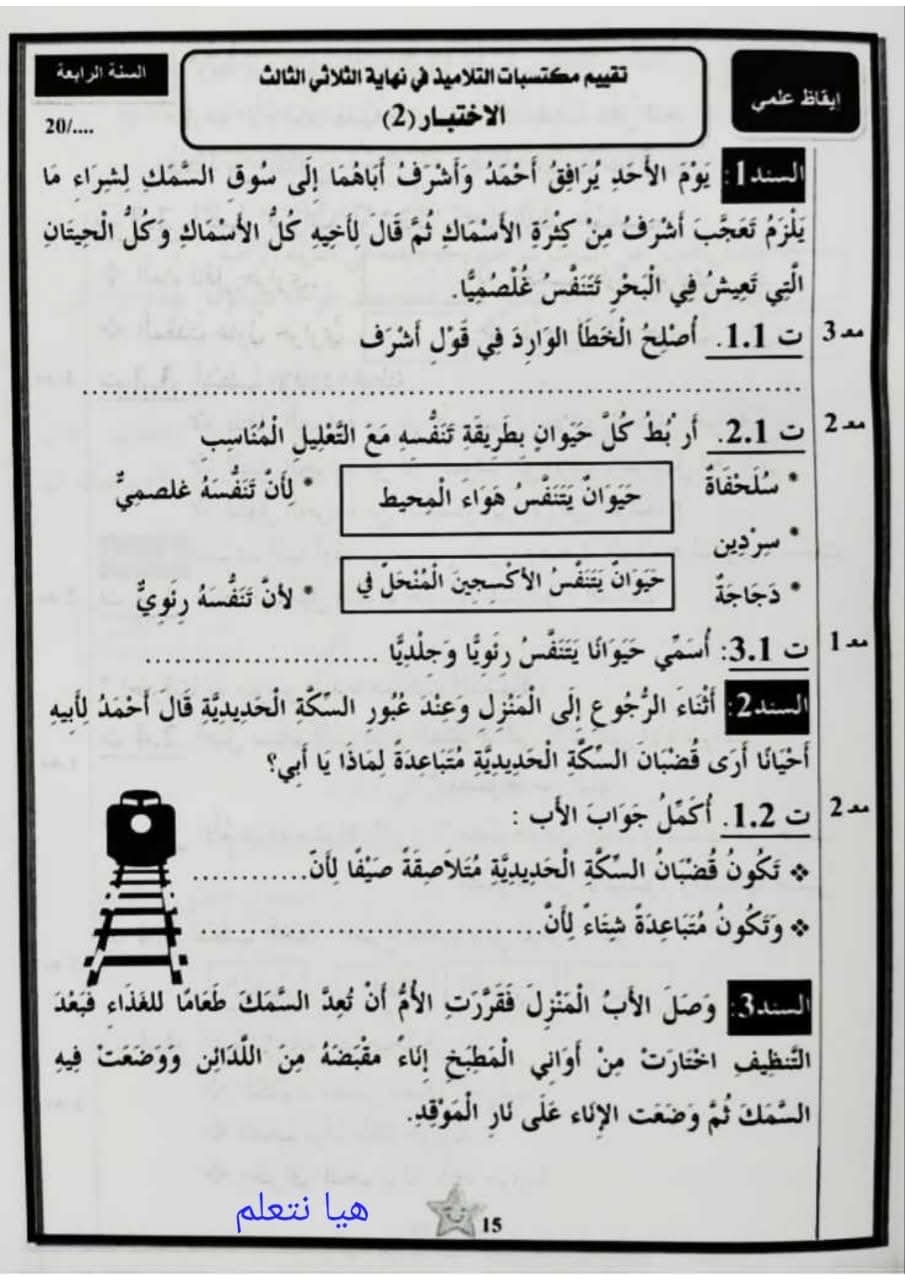 إيقاظ علمي
تقييم مكتسبات التلاميذ في نهاية الثلاثي الثالث
الاختبار (2)
السنة الرابعة
20/....
السند1: يَوْمَ الأَحَدِ يُرَافِقُ أَحْمَدُ وَأَشْرَفُ أَبَاهُمَا إِلَى سُوقِ السَّمَكِ لِشِرَاءِ مَا
يَلْزَمُ تَعَجَّبَ أَشْرَفُ مِنْ كِثْرَةِ الأَسْمَاكِ ثُمَّ قَالَ لِأَخِيهِ كُلُّ الأَسْمَاكِ وَكُلُّ الْحِيتَانِ
الَّتِي تَعِيشُ فِي الْبَحْرِ تَتَنَفَّس غُلْصُمِيًّا.
معـ3 ت 1.1. أُصْلِحُ الْخَطَأَ الوَارِدَ فِي قَوْلِ أَشْرَف
................................................................
معـ2 ت 2.1. أَرْبُطُ كُلَّ حَيَوانٍ بِطَرِيقَةِ تَنَفُّسِهِ مَعَ التَّعْلِيلِ الْمُنَاسِبِ
* سُلَحْفَاةٌ حَيَوَانٌ يَتَنَفَّسُ هَوَاءَ الْمِحيط * لِأَنَّ تَنَفُّسَهُ غلصمِيٌّ
* سِرْدِين
* دَجَاجَةٌ حَيَوَانٌ يَتَنَفَّسُ الأُكْسِجِينَ الْمُنْحَلَّ في * لأنَّ تَنَفُّسَهُ رِئَوِيٌّ
معـ1 ت 3.1: أُسَمِّي حَيَوَانًا يَتَنَفَّسُ رِئَوِيًّا وَجَلْدِيًّا ........................
السند2: أَثْنَاءَ الرُّجُوعِ إِلَى الْمَنْزِلِ وَعِنْدَ عُبُورِ السِّكَّةِ الْحَدِيدِيَّةِ قَالَ أَحْمَدُ لِأَبِيهِ
أَحْيَانًا أَرَى قُضْبَانَ السِّكَّةِ الْحَدِيدِيَّةِ مُتَبَاعِدَةً لِمَاذَا يَا أَبِي؟
معـ2 ت 1.2. أُكَمِّلُ جَوَابَ الأَب :
❖ تَكُونُ قُضْبَانُ السِّكَّةِ الْحَدِيدِيَّةِ مُتَلاَصِقَةً صَيْفًا لِأَنّ............
❖ وَتَكُونُ مُتَبَاعِدَةً شِتَاءً لِأَنَّ....................................
السند3: وَصَلَ الأَبُ الْمَنْزِلَ فَقَرَّرَتِ الأُمُّ أَنْ تُعِدَّ السَّمَكَ طَعَامًا للغَذَاءِ فَبَعْدَ
التَّنظِيفِ اخْتَارَتْ مِنْ أَوَانِي الْمَطْبَخِ إِنَاءً مقْبَضَهُ مِنَ اللَّدَائِنِ وَوَضَعَتْ فِيهِ
السَّمَكَ ثُمَّ وَضَعَتِ الإِنَاء عَلَى نَارِ الْمَوْقِدِ.
15
هيا نتعلم